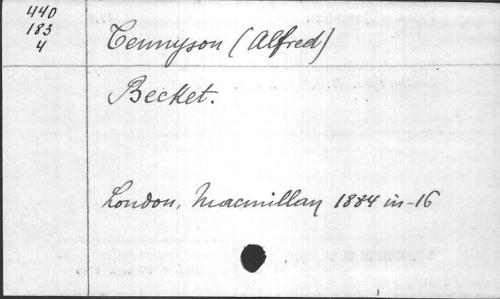 440
183
4
Tennyson (Alfred)
Becket.
London, Macmillan 1884 in-16